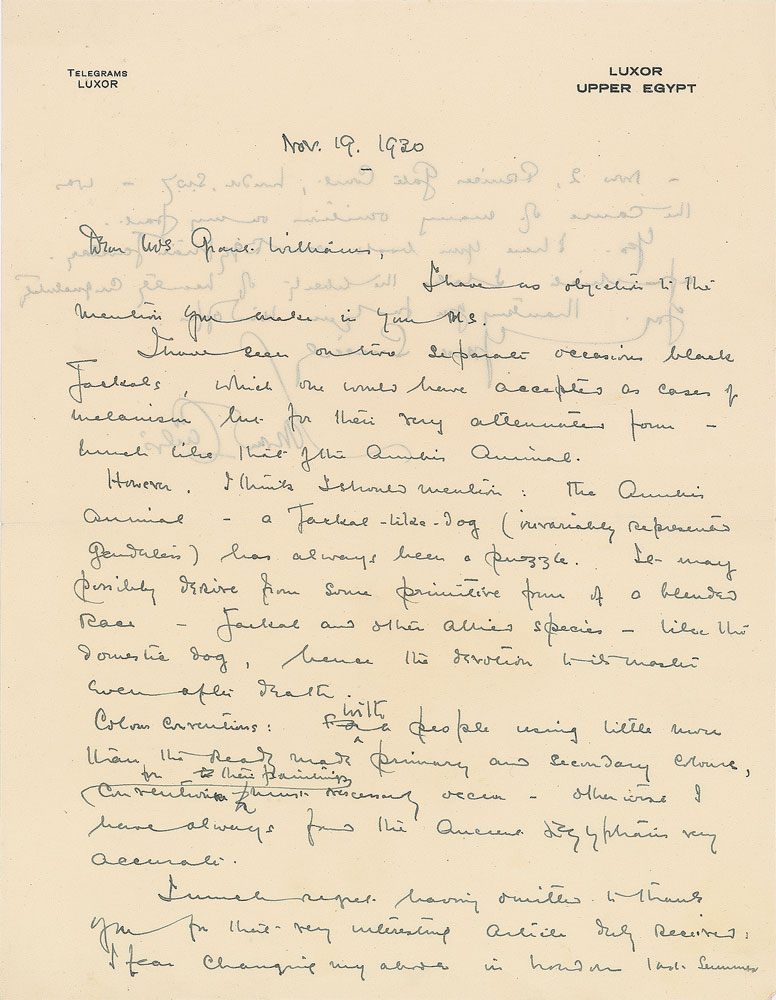 TELEGRAMS
LUXOR
LUXOR
UPPER EGYPT
Nov. 19. 1930
Dear Mrs Grant Williams,
I have no objection to the
mention you make in your MS.
I have seen on two separate occasions black
Jackals, which one would have accepted as cases of
melanism but for their very attenuated form —
much like that of the Anubis Animal.
However, I think I should mention: the Anubis
Animal — a Jackal-like-dog (invariably represented
genderless) has always been a puzzle. It may
possibly derive from some primitive form of a blended
Race — Jackal and other allied species — like the
domestic dog, hence the devotion to its master
even after death.
Colour conventions: with a people using little more
than the ready made primary and secondary colours,
for to their paintings
conventions must necessarily occur — otherwise I
have always found the Ancient Egyptians very
accurate.
I much regret having omitted to thank
you for that very interesting article duly received:
I fear changing my abode in London last Summer